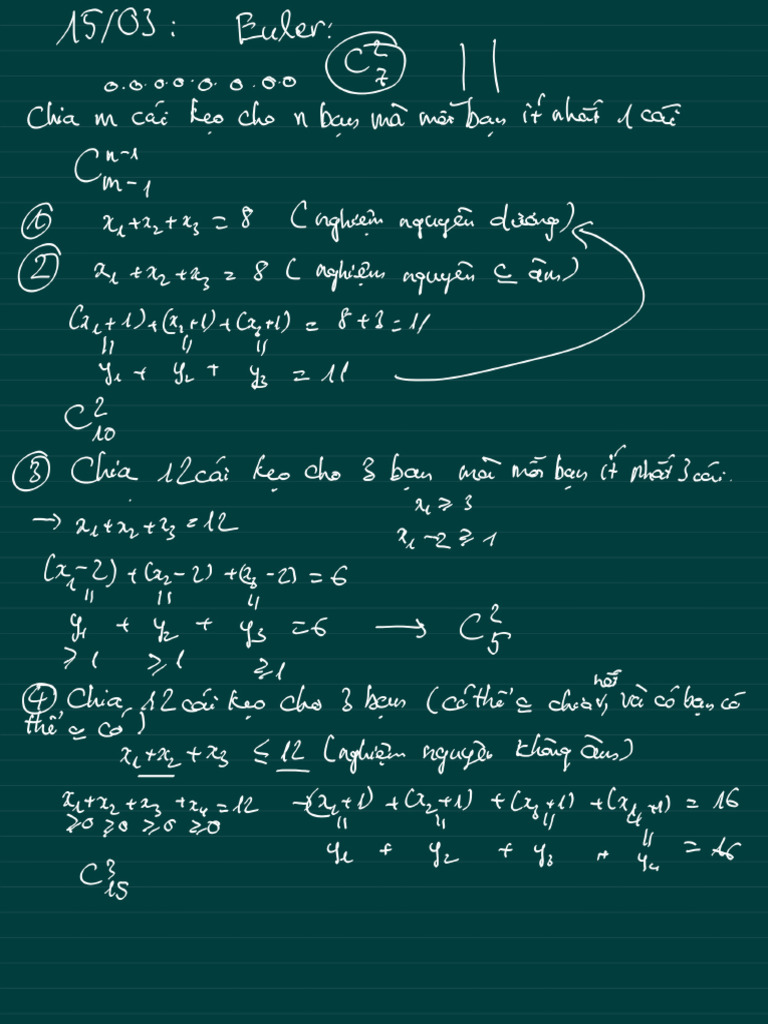 15/03: Euler:
o.o.o.o.o.o.o.o C₇² ||
Chia m cái kẹo cho n bạn mà mỗi bạn ít nhất 1 cái
C_{m-1}^{n-1}
① x₁+x₂+x₃ = 8 (nghiệm nguyên dương)
② x₁+x₂+x₃ = 8 (nghiệm nguyên c âm)
(x₁+1)+(x₂+1)+(x₃+1) = 8+3=11
y₁ + y₂ + y₃ = 11
C₁₀²
③ Chia 12 cái kẹo cho 3 bạn mà mỗi bạn ít nhất 3 cái.
x₁ ≥ 3
→ x₁+x₂+x₃=12
x₁-2 ≥ 1
(x₁-2)+(x₂-2)+(x₃-2)=6
y₁ + y₂ + y₃ =6 → C₅²
≥1 ≥1 ≥1
④ Chia 12 cái kẹo cho 3 bạn (có thể c chia hết, và có bạn có
thể c có)
x₁+x₂+x₃ ≤ 12 (nghiệm nguyên không âm)
x₁+x₂+x₃+x₄=12 →(x₁+1)+(x₂+1)+(x₃+1)+(x₄+1)=16
≥0 ≥0 ≥0 ≥0
y₁ + y₂ + y₃ + y₄ = 16
C₁₅³